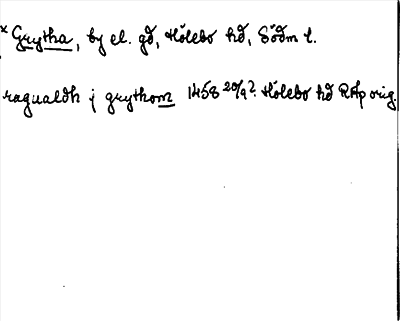 x Grytha, by el. gd, Hölebo hd, Södm l.
ragualdh j grythom 1458 20/9? Hölebo hd RAp orig.